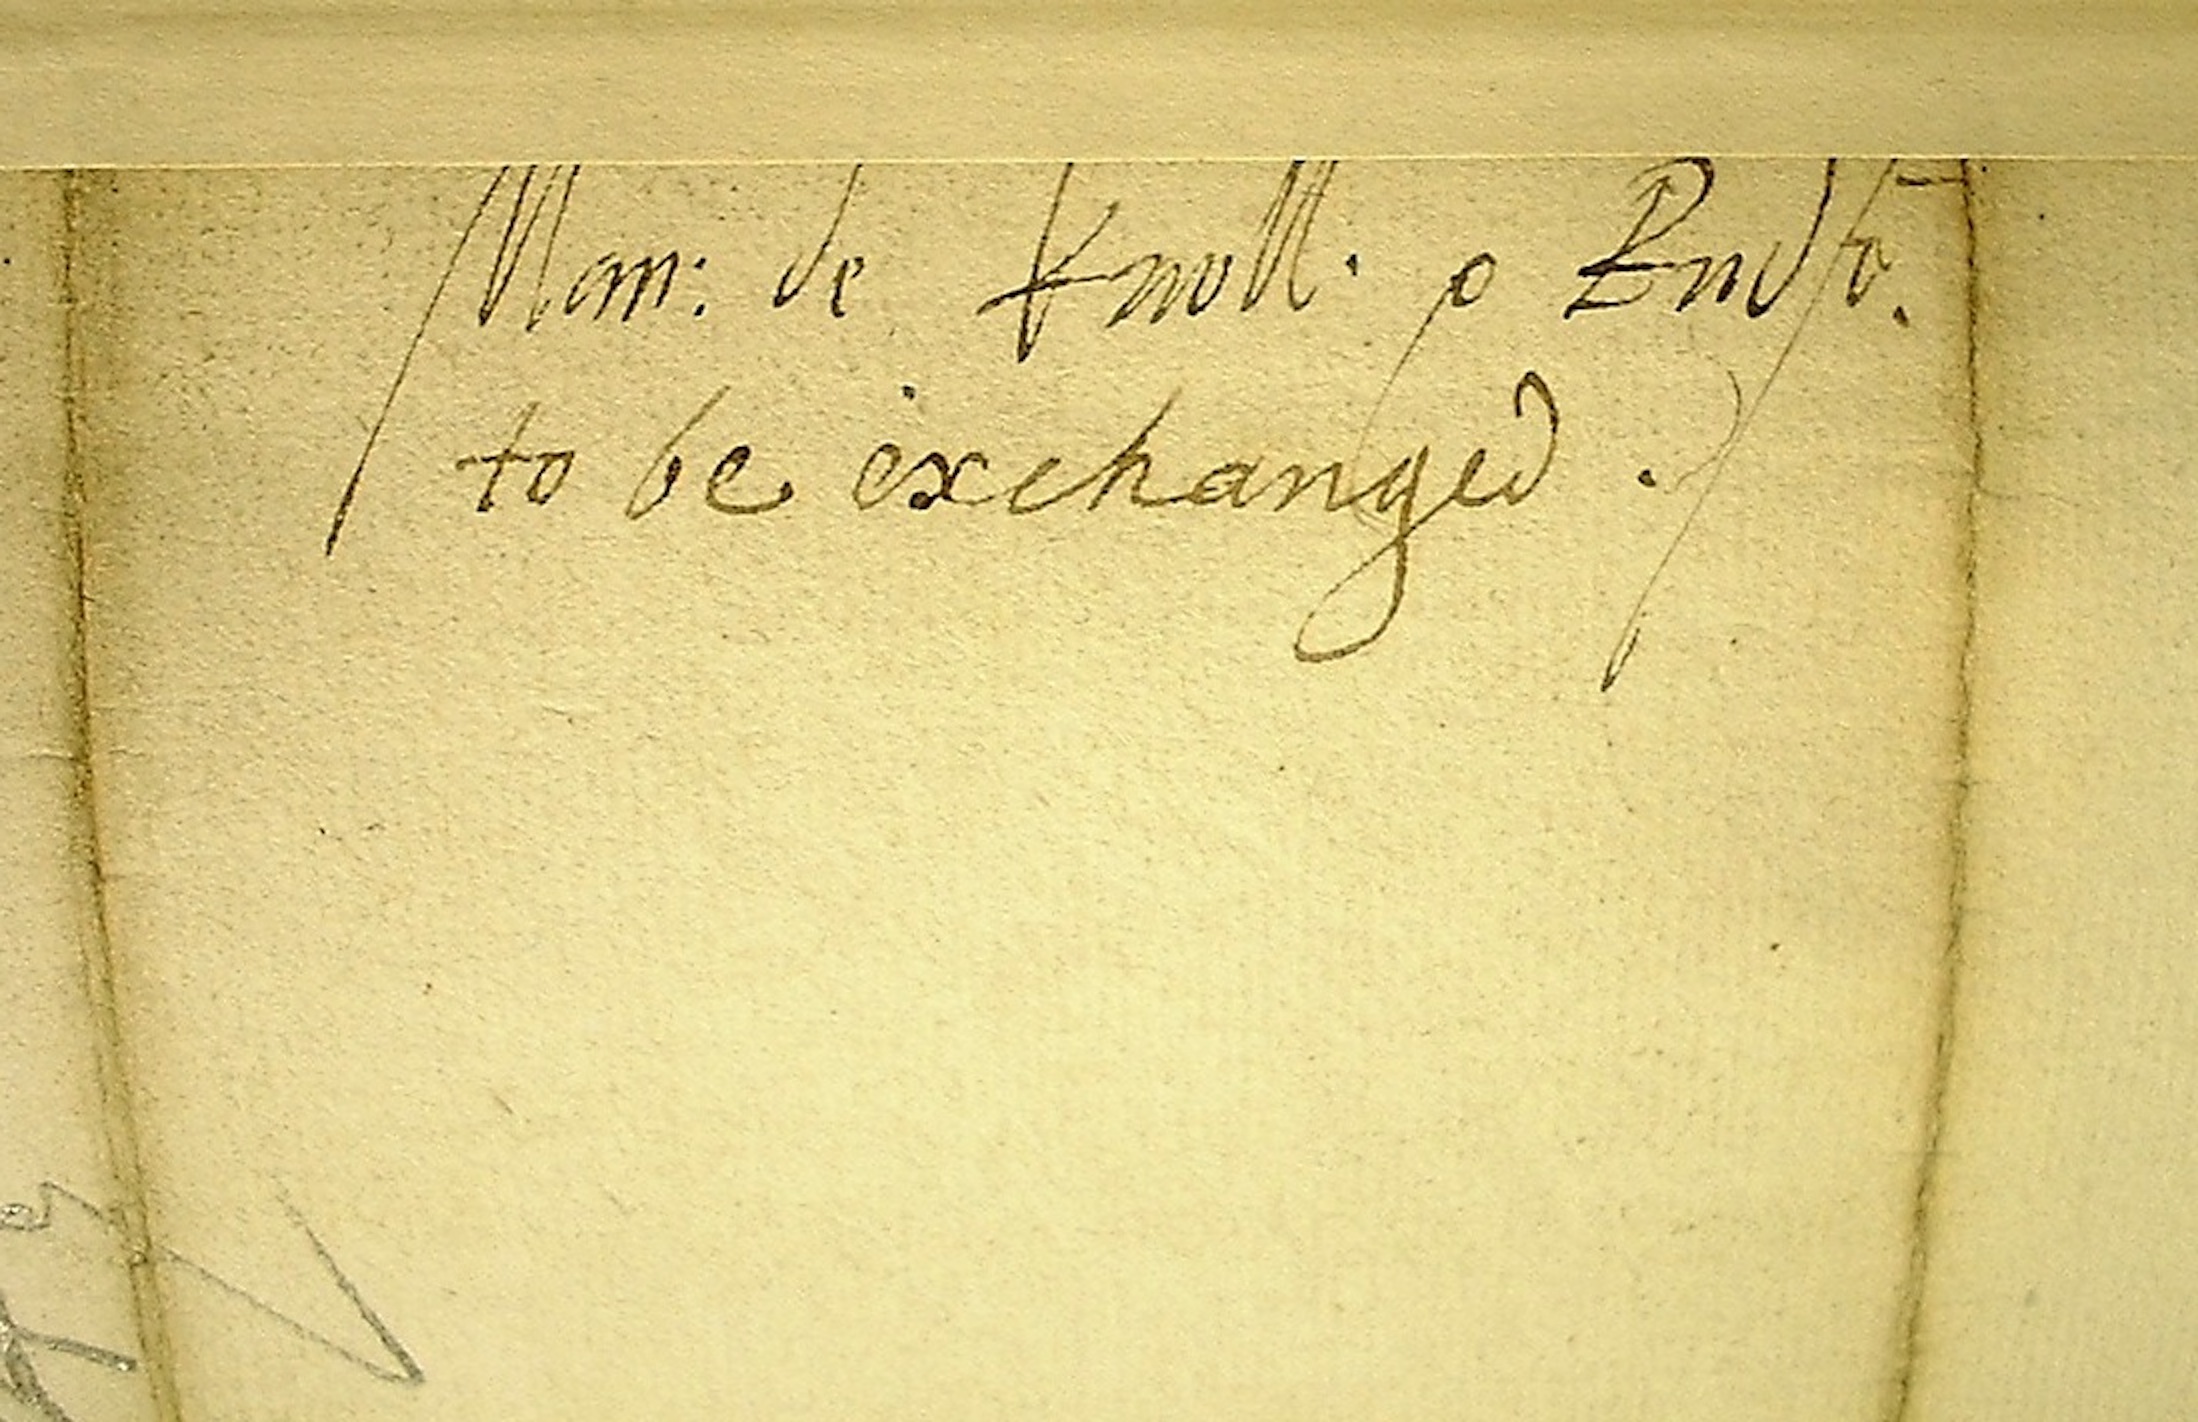 Man: de Knoll. p
to be exchanged.